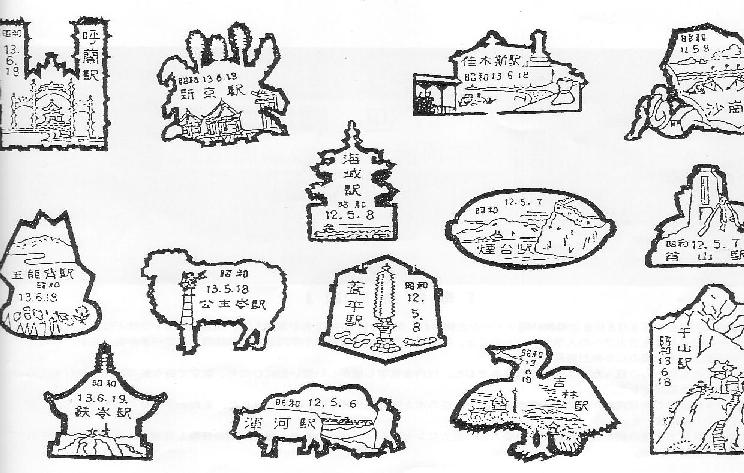 昭和
13.
6.
18
呼蘭駅
昭和 13.6.18
新京駅
佳木斯駅
昭和13.6.18
昭和
12.5.8
沙崗
海城駅
昭和
12.5.8
昭和 12.5.7
煙台駅
昭和 12.5.7
山駅
五龍背駅
昭和
13.6.18
昭和
13.5.18
公主岺駅
蓋平駅
昭和
12.
5.
8
千山駅
昭和
13
6
18
昭和
13.6.19.
鉄岺駅
昭和 12.5.6
渾河駅
昭和
13
6
19
吉林駅